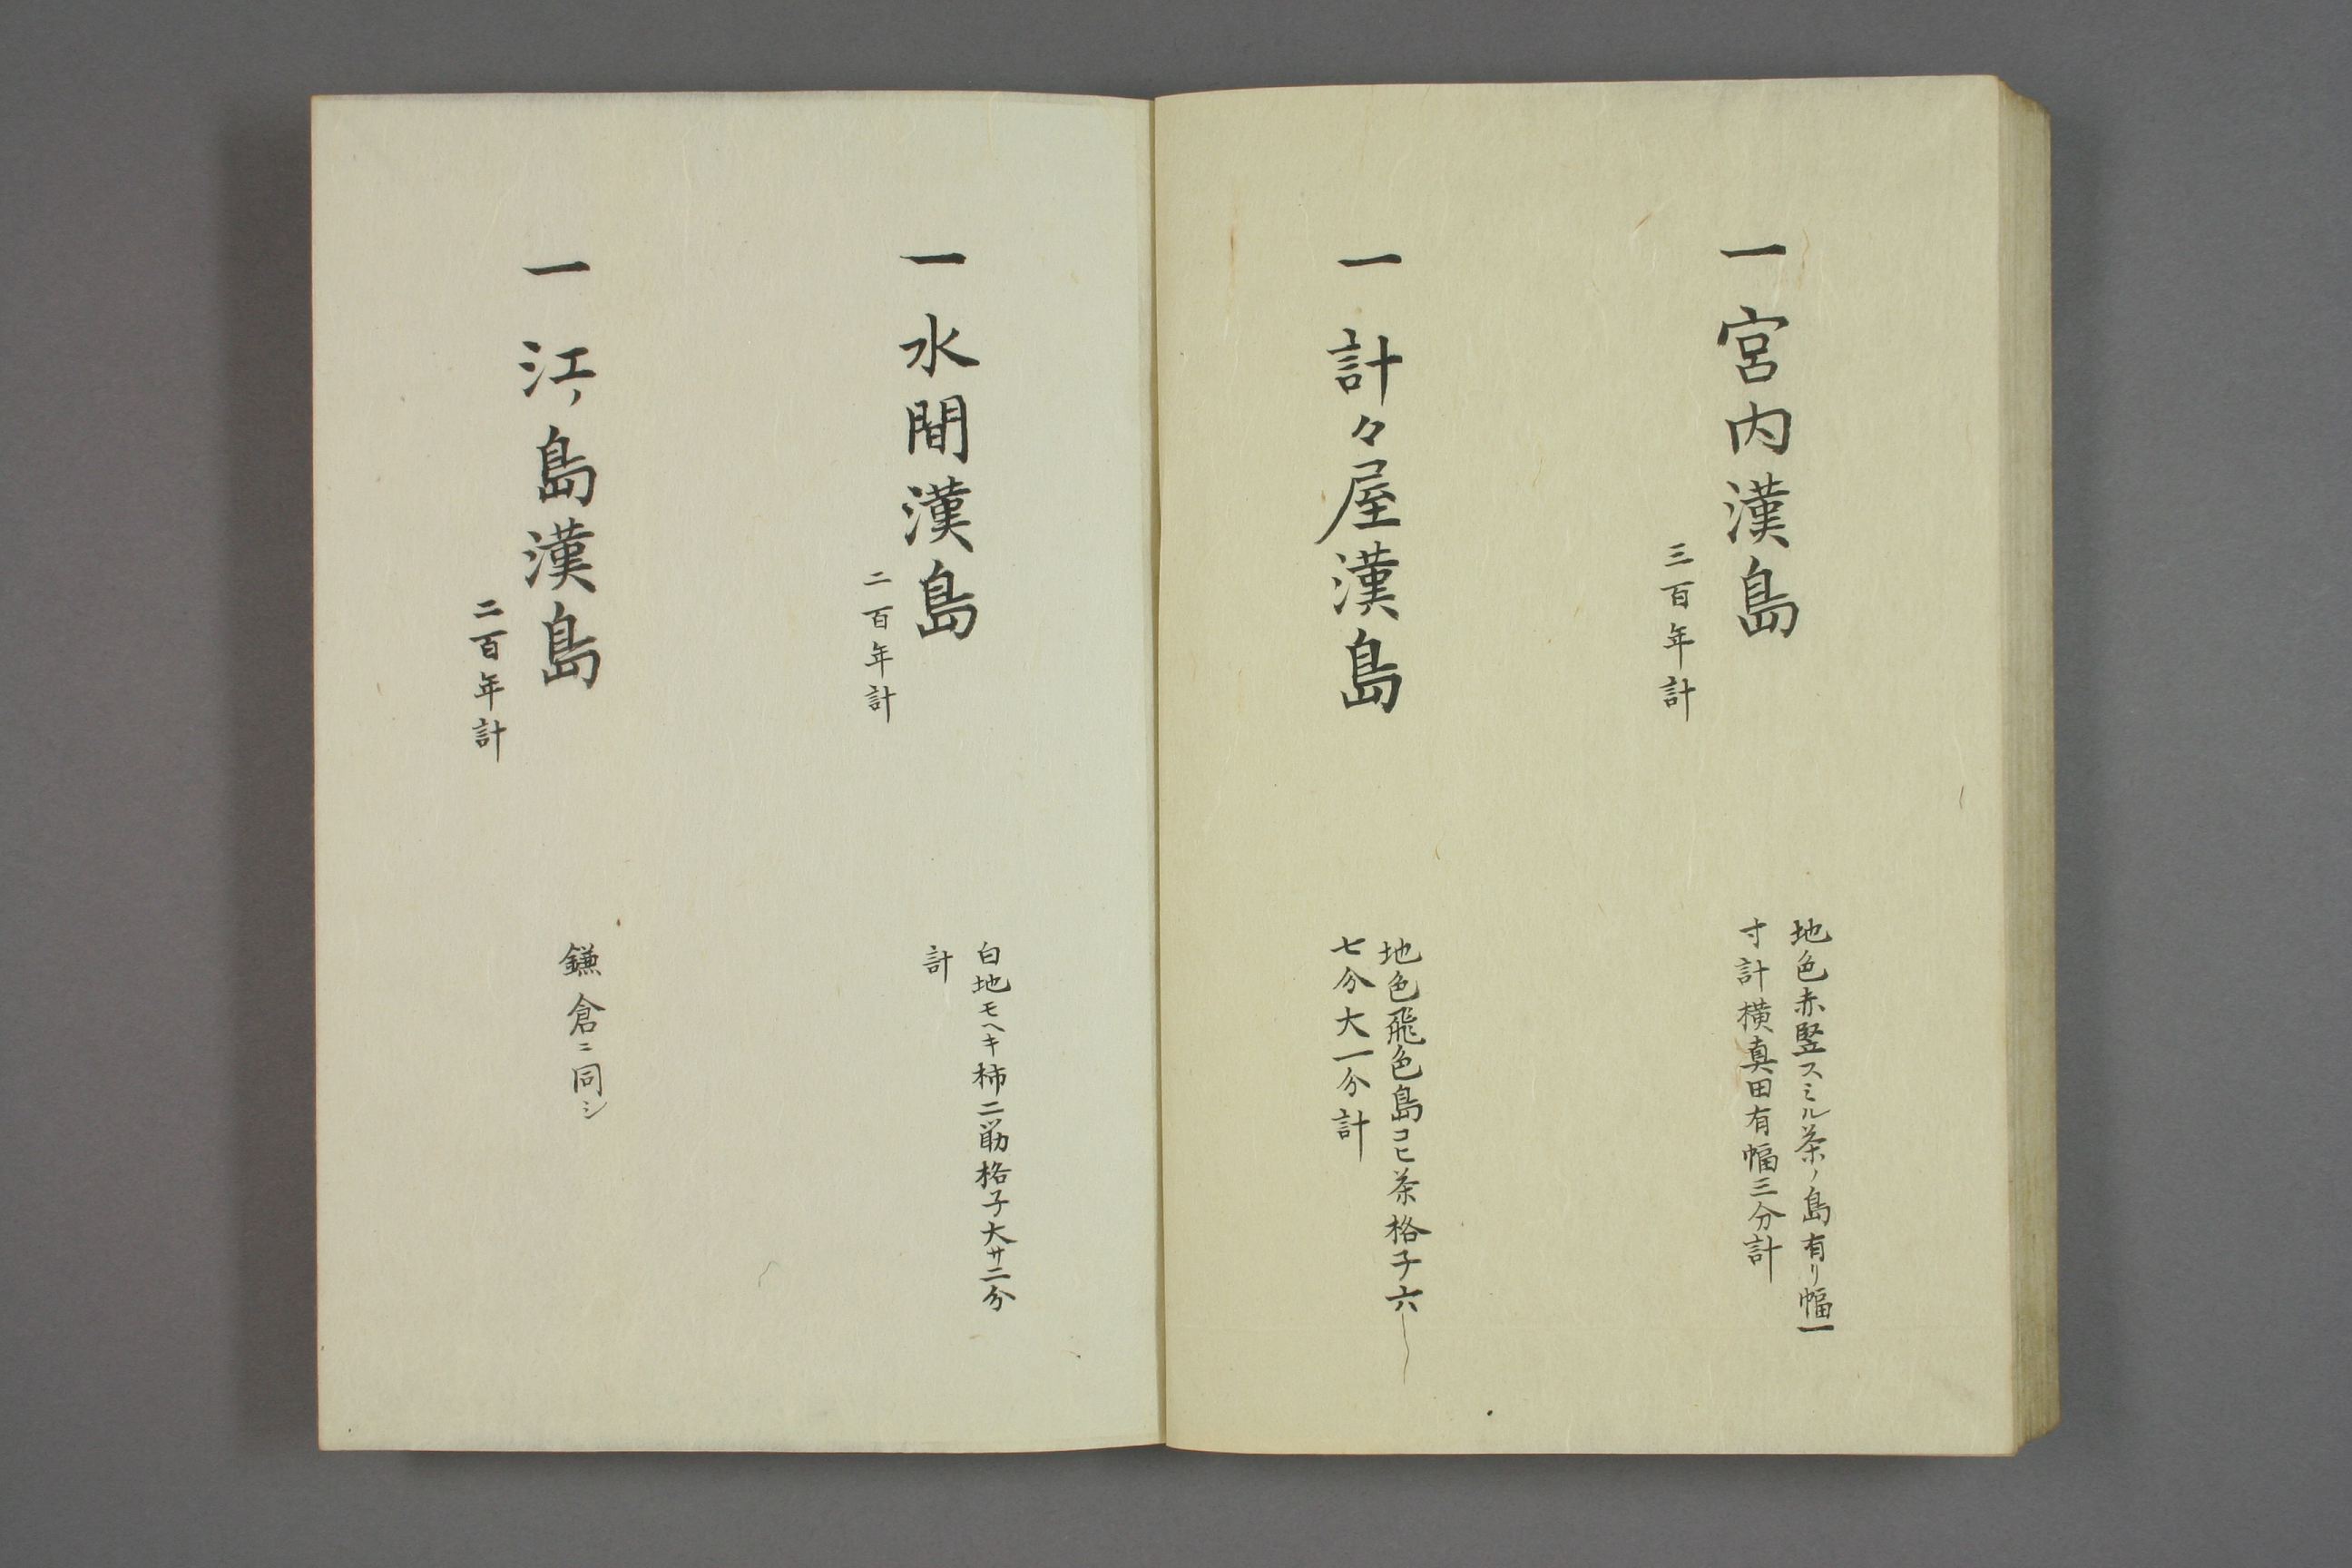 一宮内漢島
三百年計
地色赤竪スミル茶ノ島有リ幅一
寸計横真田有幅三分計
一計々屋漢島
地色飛色島コヒ茶格子六
七分大一分計
一水間漢島
二百年計
白地モヘキ柿二筋格子大サ二分
計
一江ノ島漢島
二百年計
鎌倉ニ同シ